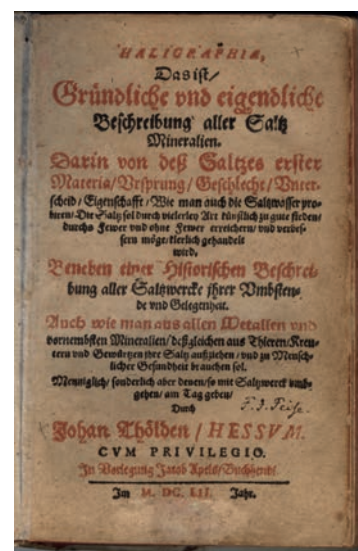 HALIGRAPHIA,
Das ist/
Gründliche vnd eigendliche
Beschreibung aller Saltz
Mineralien.
Darin von deß Saltzes erster
Materia/Vrsprung/Geschlecht/Vnter-
scheid/Eigenschafft/Wie man auch die Saltzwosser pro-
biren/Die Saltz sol durch vielerley Art künstlich zu gute sieden/
durchs Fewer vnd ohne Fewer erreichern/vnd verbes-
sern möge/klerlich gehandelt
wird.
Beneben einer Historischen Beschrei-
bung aller Saltzwercke ihrer Vmbsten-
de vnd Gelegenheit.
Auch wie man aus allen Metallen vnd
vornembsten Mineralien/deßgleichen aus Thieren/Kreu-
tern vnd Gewürtzen ihre Saltz außziehen/vnd zu Mensch-
licher Gesundheit brauchen sol.
Menniglich/sonderlich aber denen/so mit Saltzwerck vmb-
gehen/am Tag geben/
Durch
Johan Thölden/HESSVM.
CVM PRIVILEGIO.
In Vorlegung Jacob Apels/Buchhendl.
Im M. DC. III. Jahr.